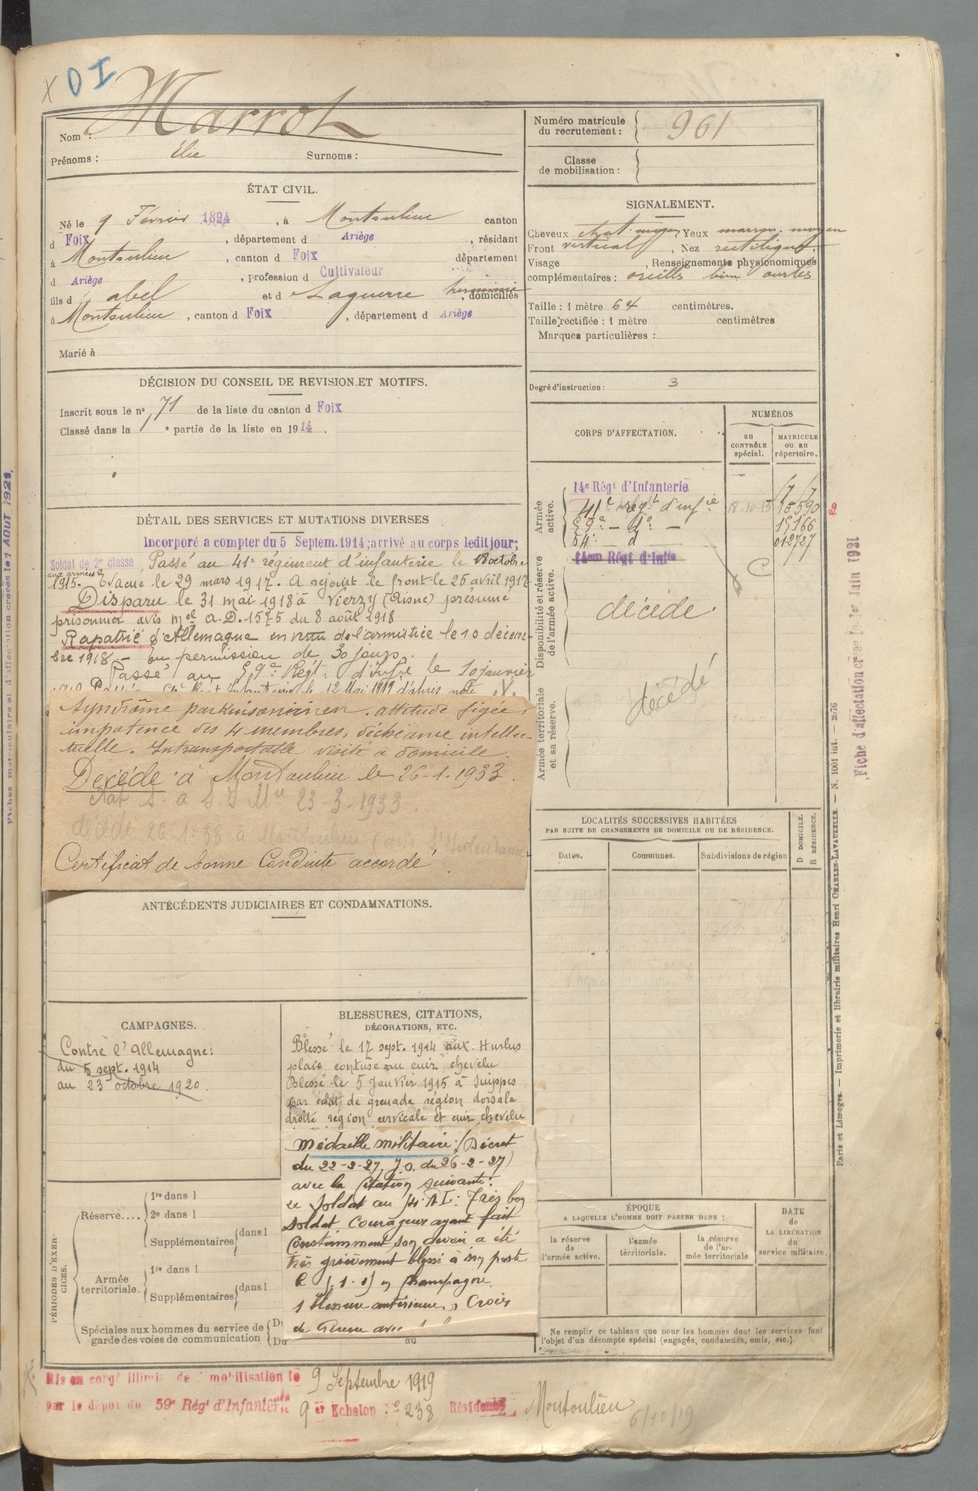 X D I
Nom : Marrot
Prénoms : Elie Surnoms :
Numéro matricule
du recrutement : 961
Classe
de mobilisation :
ÉTAT CIVIL.
Né le 9 Février 1894, à Montoulieu canton
d Foix, département d Ariège, résidant
à Montoulieu, canton d Foix département
d Ariège, profession d Cultivateur
fils d abel et d Laguerre herminie, domiciliés
à Montoulieu, canton d Foix, département d Ariège
Marié à
SIGNALEMENT.
Cheveux chat. moyen, Yeux marron. moyen
Front vertical, Nez rectiligne,
Visage , Renseignements physionomiques
complémentaires : oreilles bien ourlées
Taille : 1 mètre 64 centimètres.
Taille rectifiée : 1 mètre centimètres
Marques particulières :
Degré d'instruction : 3
DÉCISION DU CONSEIL DE REVISION ET MOTIFS.
Inscrit sous le n° 71 de la liste du canton d Foix
Classé dans la e partie de la liste en 1914.
CORPS D'AFFECTATION.
NUMÉROS
au
CONTRÔLE
spécial.
MATRICULE
ou au
répertoire.
Armée
active.
14e Régt d'Infanterie
41e Régt d'infie 15590
59e - do - 15166
14e d 012727
Disponibilité et réserve
de l'armée active.
14eme Régt d'Infie
C
décédé
Armée territoriale
et sa réserve.
décédé
DÉTAIL DES SERVICES ET MUTATIONS DIVERSES
Incorporé à compter du 5 Septem. 1914; arrivé au corps ledit jour;
Soldat de 2e classe, Passé au 41e régiment d'infanterie le 18 octobre
1915. Evacué le 29 mars 1917. A rejoint le front le 25 avril 1917
Disparu le 31 mai 1918 à Vierzy (Aisne) présumé
prisonnier avis mel A.D. 1575 du 8 août 1918
Rapatrié d'Allemagne en vertu de l'armistice le 10 décem-
bre 1918. - En permission de 30 jours.
Passé au 59e Régt d'Infie le 10 janvier
le 12 Mai 1919
Syndrome parkinsonien. attitude figée,
impotence des 4 membres, déchéance intellec-
tuelle. Intransportable visite à domicile.
Décédé à Montoulieu le 26-1-1933.
23-3-1933
26-1-33 à Montoulieu
Certificat de bonne Conduite accordé
ANTÉCÉDENTS JUDICIAIRES ET CONDAMNATIONS.
LOCALITÉS SUCCESSIVES HABITÉES
PAR SUITE DE CHANGEMENTS DE DOMICILE OU DE RÉSIDENCE.
Dates. Communes. Subdivisions de région D DOMICILE. R RÉSIDENCE.
CAMPAGNES.
Contre l'Allemagne:
du 5 sept. 1914
au 23 octobre 1920.
BLESSURES, CITATIONS,
DÉCORATIONS, ETC.
Blessé le 17 sept. 1914 aux Hurlus
plaie contuse au cuir chevelu
Blessé le 5 janvier 1915 à Suippes
par éclat de grenade région dorsale
droite région cervicale et cuir chevelu
Médaille militaire : (Décret
du 22-2-27, J.O. du 26-2-27)
avec la citation suivante :
Soldat au 14 R.I. : Très bon
Soldat courageux ayant fait
constamment son devoir a été
très grièvement blessé à son poste
le 5-1-15 en Champagne.
1 blessure antérieure, Croix
de Guerre avec
PÉRIODES D'EXER-
CICES.
Réserve.... 1re dans l
2e dans l
Supplémentaires dans l
Armée
territoriale. 1re dans l
Supplémentaires dans l
Spéciales aux hommes du service de
garde des voies de communication Du
Du au
ÉPOQUE
A LAQUELLE L'HOMME DOIT PASSER DANS :
la réserve
de
l'armée active.
l'armée
térritoriale.
la réserve
de l'ar-
mée territoriale
DATE
de
LA LIBÉRATION
du
service militaire.
Ne remplir ce tableau que pour les hommes dont les services font
l'objet d'un décompte spécial (engagés, condamnés, omis, etc.).
Mis en congé illimité de démobilisation le 9 Septembre 1919
par le dépôt du 59e Régt d'Infanterie 9 er Echelon No 238 Résidence Montoulieu
6/10/19
Fiche d'affectation créée le 1er Juin 1921
Paris et Limoges. — Imprimerie et librairie militaires Henri CHARLES-LAVAUZELLE. — N. 1001 int. — 2676
Fiches matriculaire et d'affectation créées le 1 AOUT 1921